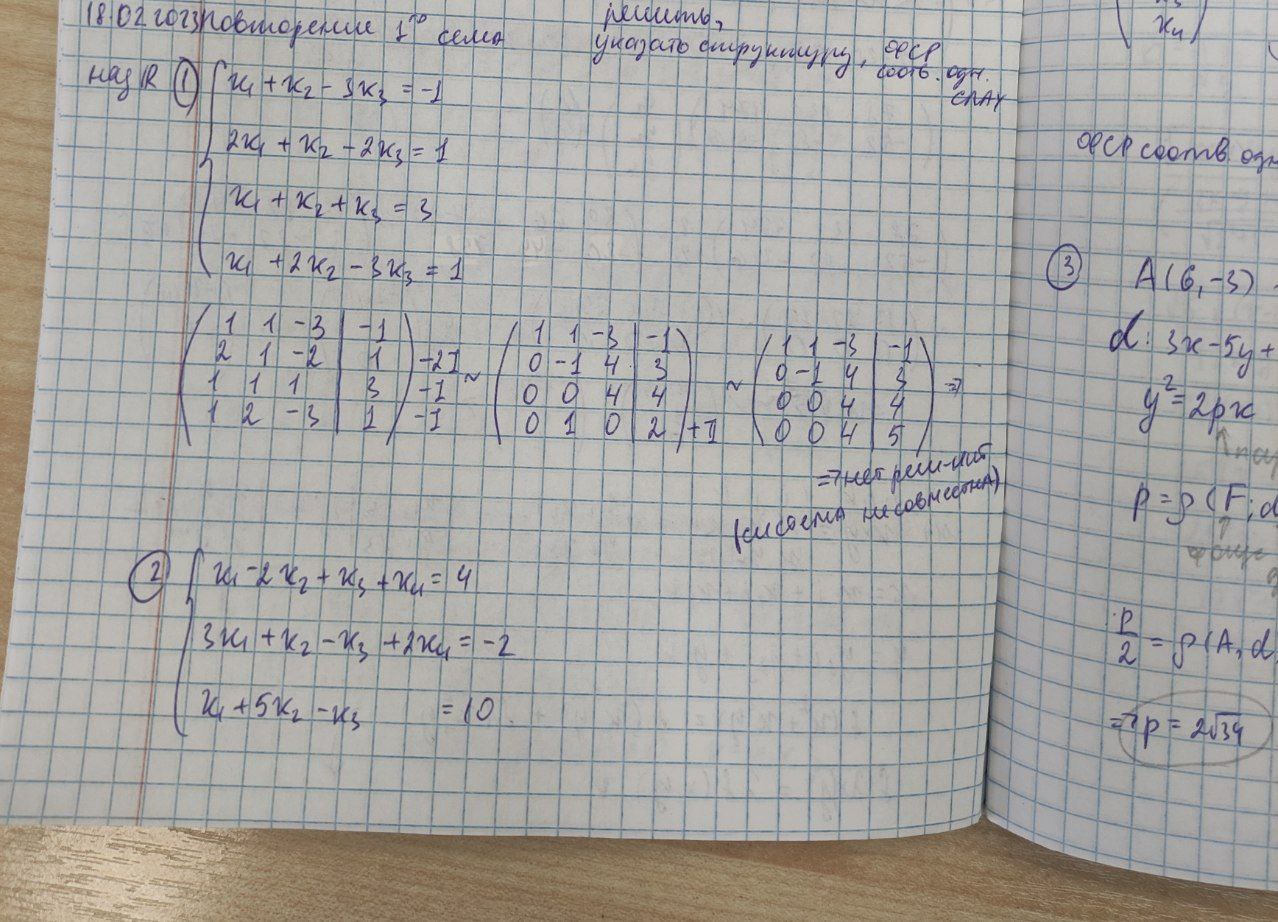 18.02.2023 повторение 1го сема
решить,
указать структуру, ФСР
соотв. одн.
СЛАУ
над R ① x₁ + x₂ - 3x₃ = -1
2x₁ + x₂ - 2x₃ = 1
x₁ + x₂ + x₃ = 3
x₁ + 2x₂ - 3x₃ = 1
1 1 -3 | -1 ~ 1 1 -3 | -1 ~ 1 1 -3 | -1
2 1 -2 | 1 -2I 0 -1 4 | 3 0 -1 4 | 3 ⇒
1 1 1 | 3 -I 0 0 4 | 4 0 0 4 | 4
1 2 -3 | 1 -I 0 1 0 | 2 +II 0 0 4 | 5
⇒ нет реш-ий
(система несовместна)
② x₁ - 2x₂ + x₃ + x₄ = 4
3x₁ + x₂ - x₃ + 2x₄ = -2
x₁ + 5x₂ - x₃ = 10
x₃
x₄
ФСР соотв. одн
③ A(6, -3)
d: 3x - 5y +
y² = 2px
p = ρ(F; d
фокус
p/2 = ρ(A, d
⇒ p = 2√34